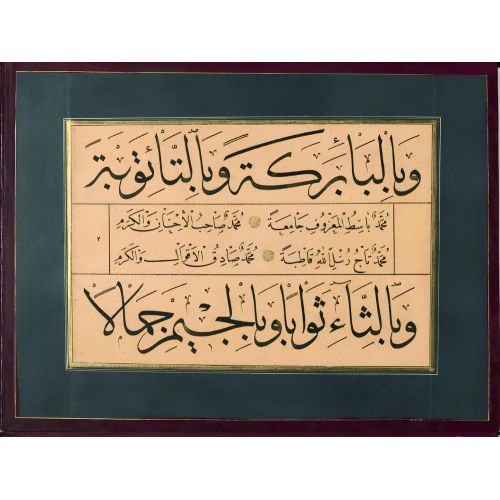 وَبِالْبَاءِ بَرَكَةً وَبِالتَّاءِ تَوْبَةً
مُحَمَّدٌ بَاسِطُ الْمَعْرُوفِ جَامِعَةً مُحَمَّدٌ صَاحِبُ الْإِحْسَانِ وَالْكَرَمِ
٢
مُحَمَّدٌ تَاجُ رُسْلِ اللهِ قَاطِبَةً مُحَمَّدٌ صَادِقُ الْأَقْوَالِ وَالْكَرَمِ
وَبِالثَّاءِ ثَوَابًا وَبِالْجِيمِ جَمَالًا